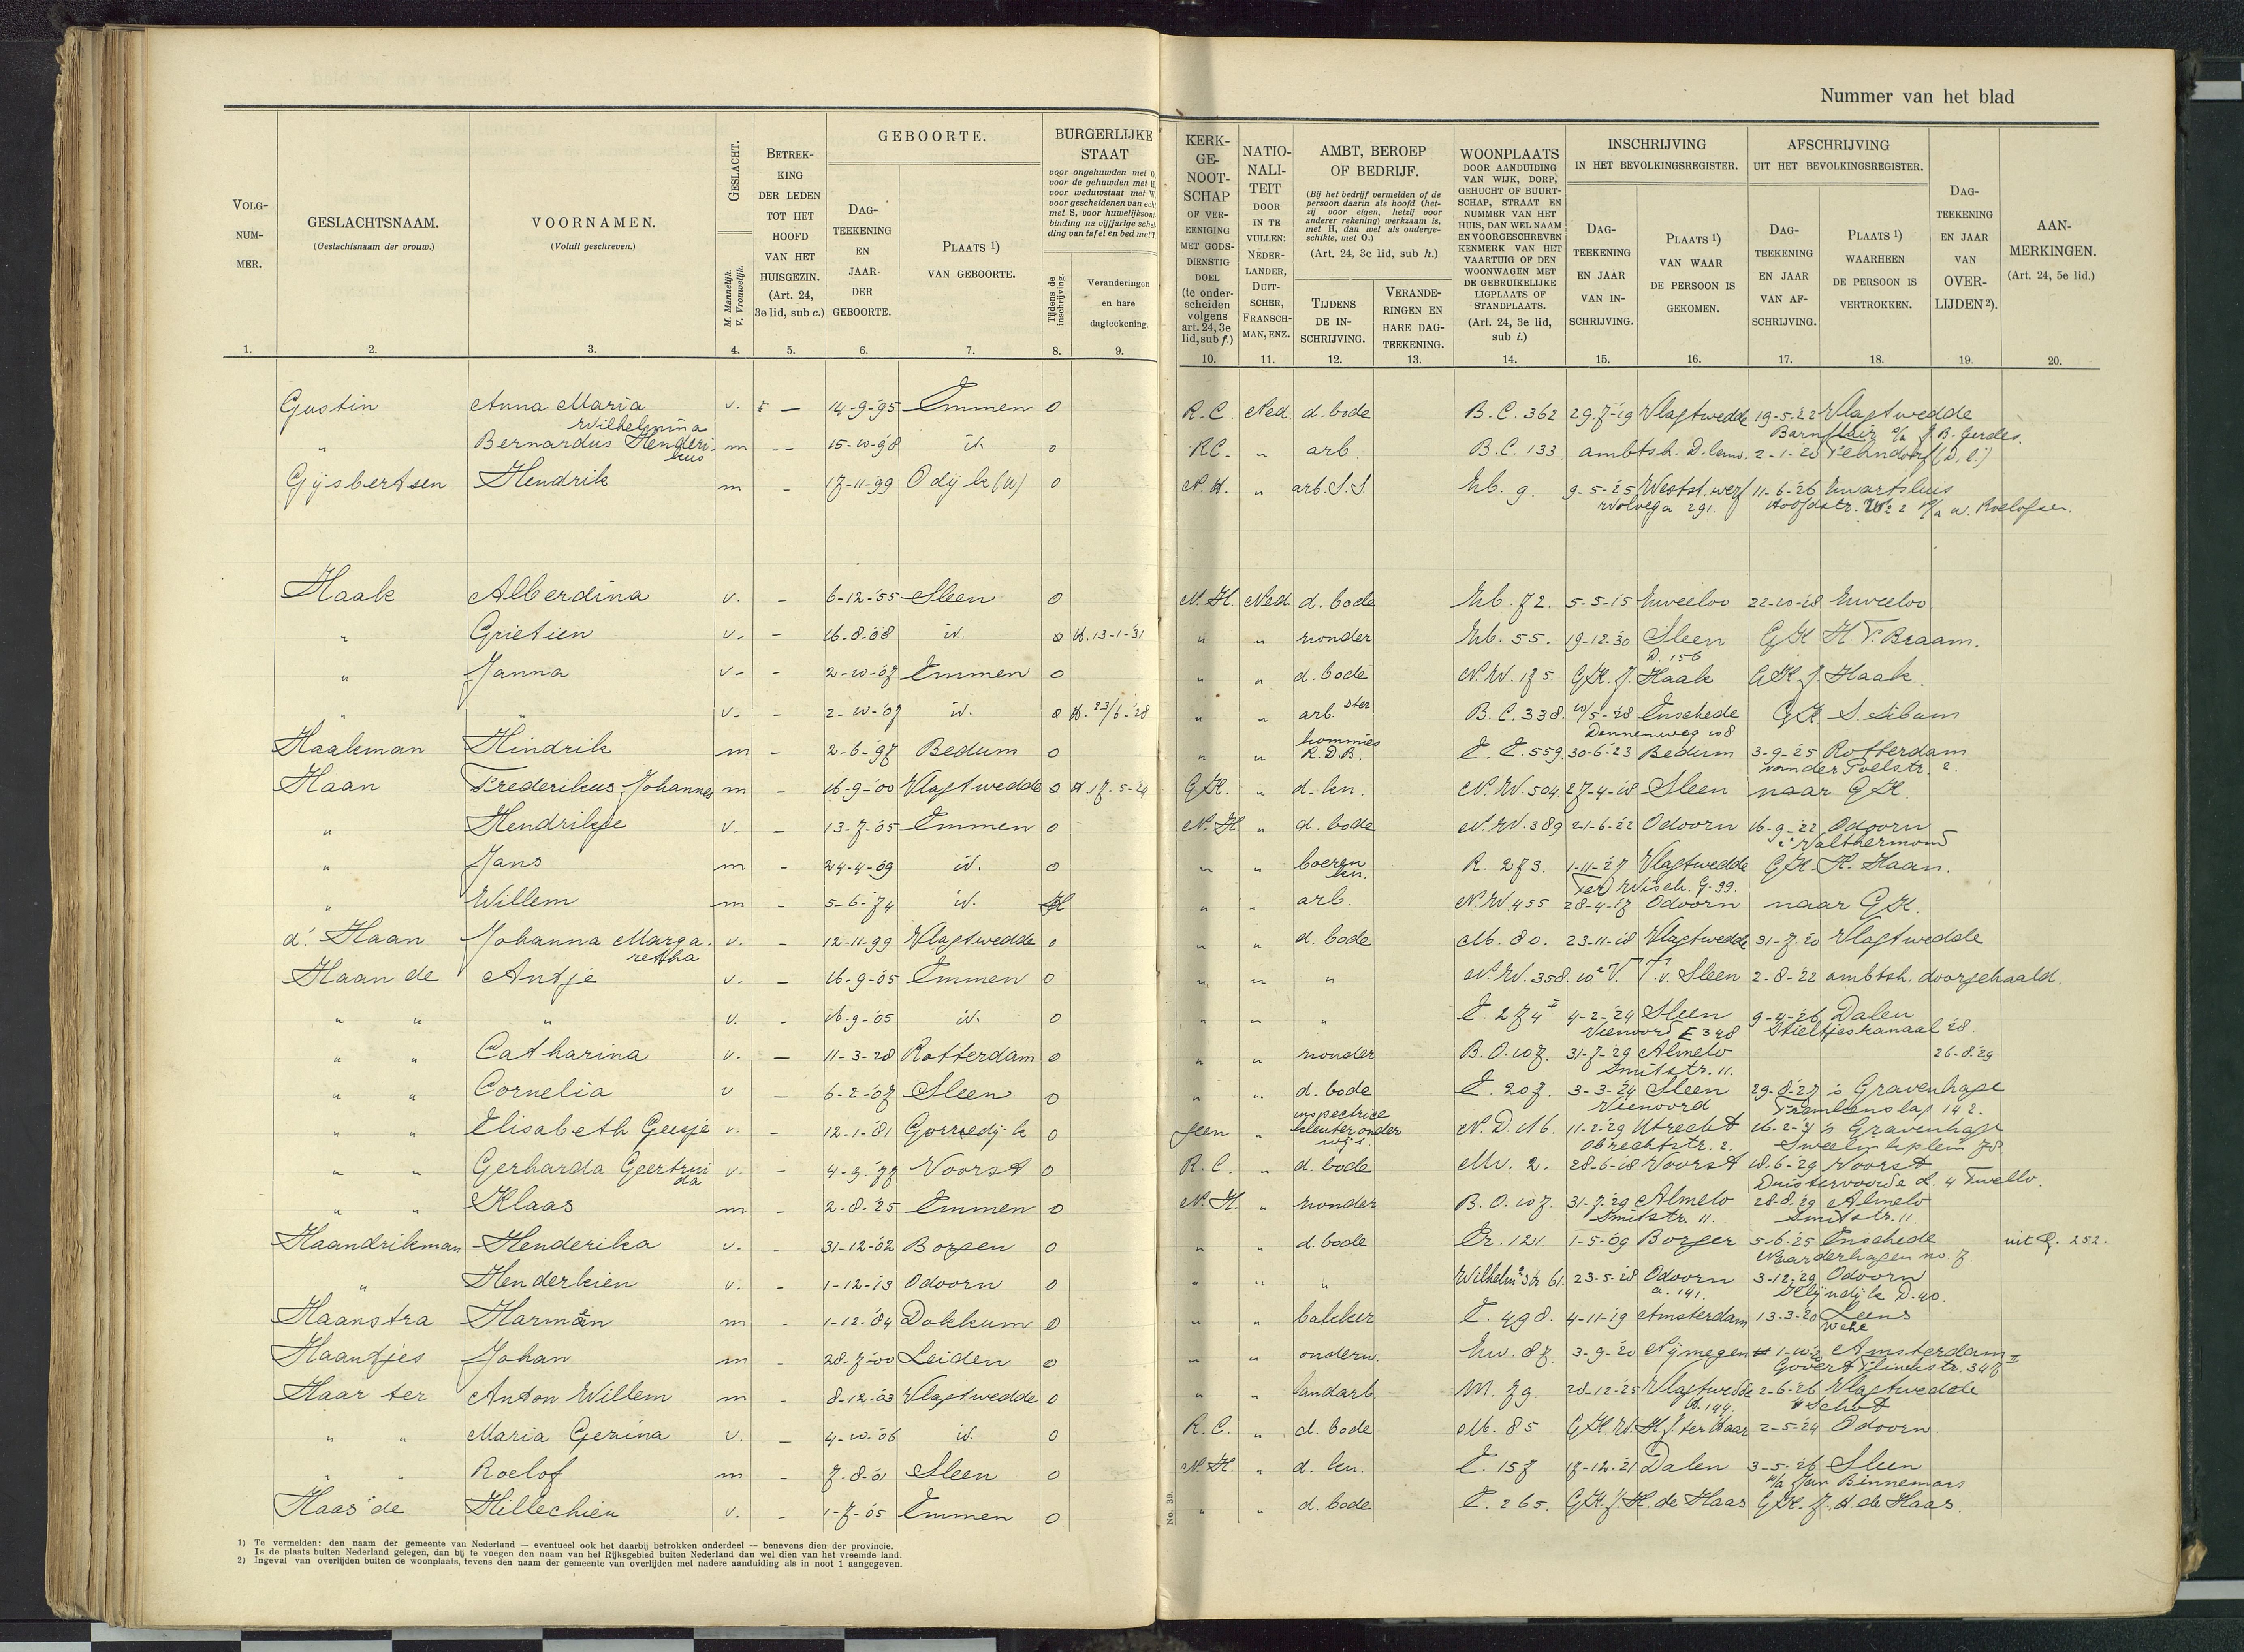 Nummer van het blad
VOLG-NUM-MER.
GESLACHTSNAAM.
(Geslachtsnaam der vrouw.)
VOORNAMEN.
(Voluit geschreven.)
GESLACHT.
M. Mannelijk.
V. Vrouwelijk.
BETREK-KING DER LEDEN TOT HET HOOFD VAN HET HUISGEZIN.
(Art. 24, 3e lid, sub c.)
GEBOORTE.
DAG-TEEKENING EN JAAR DER GEBOORTE.
PLAATS 1) VAN GEBOORTE.
BURGERLIJKE STAAT
Tijdens de inschrijving.
Veranderingen en hare dagteekening.
KERK-GE-NOOT-SCHAP OF VER-EENIGING MET GODS-DIENSTIG DOEL (te onder-scheiden volgens art. 24, 3e lid, sub f.)
NATIO-NALI-TEIT DOOR IN TE VULLEN: NEDER-LANDER, DUIT-SCHER, FRANSCH-MAN, ENZ.
AMBT, BEROEP OF BEDRIJF.
(Bij het bedrijf vermelden of de persoon daarin als hoofd (het-zij voor eigen, hetzij voor anderer rekening) werkzaam is, met H, dan wel als onderge-schikte, met O.)
(Art. 24, 3e lid, sub h.)
TIJDENS DE IN-SCHRIJVING.
VERANDE-RINGEN EN HARE DAG-TEEKENING.
WOONPLAATS DOOR AANDUIDING VAN WIJK, DORP, GEHUCHT OF BUURT-SCHAP, STRAAT EN NUMMER VAN HET HUIS, DAN WEL NAAM EN VOORGESCHREVEN KENMERK VAN HET VAARTUIG OF DEN WOONWAGEN MET DE GEBRUIKELIJKE LIGPLAATS OF STANDPLAATS.
(Art. 24, 3e lid, sub i.)
INSCHRIJVING IN HET BEVOLKINGSREGISTER.
DAG-TEEKENING EN JAAR VAN IN-SCHRIJVING.
PLAATS 1) VAN WAAR DE PERSOON IS GEKOMEN.
AFSCHRIJVING UIT HET BEVOLKINGSREGISTER.
DAG-TEEKENING EN JAAR VAN AF-SCHRIJVING.
PLAATS 1) WAARHEEN DE PERSOON IS VERTROKKEN.
DAG-TEEKENING EN JAAR VAN OVER-LIJDEN 2).
AAN-MERKINGEN.
(Art. 24, 5e lid.)
1. 2. 3. 4. 5. 6. 7. 8. 9. 10. 11. 12. 13. 14. 15. 16. 17. 18. 19. 20.
Gustin Anna Maria Wilhelmina v. - 14-9-'95 Emmen O R.C. Ned. d. bode B.C. 362 29-7-'19 Vlagtwedde 19-5-'22 Vlagtwedde
" Bernardus Henderikus m - 15-10-98 id. O RC. " arb. B.C. 133 ambtsh. 2-1-20 (D.)
Gijsbertsen Hendrik m - 17-11-99 Odijk (U) O N.H. " arb. S.S. 9. 9-5-'25 Westst.werf 11-6-'26
Wolvega 291. Hoofdstr. W. Roelofsen.
Haak Alberdina v. - 6-12-'55 Sleen O N.H. Ned d. bode 72. 5-5-'15 Zweeloo 22-10-'18 Zweeloo
" Grietien v. - 16-8-'08 id. H. 13-1-'31 " " zonder 55. 19-12-'30 Sleen GK H. T. Braam.
D. 156
" Janna v. - 2-10-'07 Emmen O " " d. bode N.W. 175. GK. J. Haak GK J. Haak.
" " v. - 2-10-'07 id. H. 23/6-'28 " " arb.ster B.C. 338. 10/5-'28 Enschede GK S. Sibum
Dennenweg 108
Haakman Hindrik m - 2-6-'97 Bedum O " " kommies R.D.B. E.E. 559 30-6-'23 Bedum 3-9-'25 Rotterdam
van der Poelstr. 2.
Haan Frederikus Johannes m - 16-9-'00 Vlagtwedde O H. 17-5-'24 GK. " d. kn. N.W. 504 27-4-'18 Sleen naar GK.
" Hendrikje v. - 13-7-'05 Emmen O N.H. " d. bode N.W. 389 21-6-'22 Odoorn 16-9-'22 Odoorn
Valthermond
" Jans m - 24-4-'09 id. O " " boeren kn. R. 273. 1-11-'27 Vlagtwedde GK H. Haan.
Ter Wisch. G-99.
" Willem m - 5-6-'74 id. H " " arb. N.W. 455 28-4-'17 Odoorn naar GK.
d'. Haan Johanna Margaretha v. - 12-11-99 Vlagtwedde O " " d. bode M. 80. 23-11-'18 Vlagtwedde 31-7-'20 Vlagtwedde
Haan de Antje v. - 16-9-05 Emmen O " " " N.W. 358. T.v. Sleen 2-8-'22 ambtsh. doorgehaald.
" " " v. - 16-9-'05 id. O " " " E. 274 I 4-2-'24 Sleen 9-4-'26 Dalen
Veenoord E 348 Stieltjeskanaal 28.
" " Catharina v. - 11-3-28 Rotterdam O " " zonder B.O. 107. 31-7-'29 Almelo 26-8-'29
Smitstr. 11.
" " Cornelia v - 6-2-'07 Sleen O " " d. bode E. 207. 3-3-'24 Sleen 29-8-'27 's Gravenhage
Veenoord 142.
" " Elisabeth Geesje v. - 12-1-'81 Gorredijk O geen " inspectrice kleuteronderwijs. N.D. 16. 11-2-'29 Utrecht 16-2-'31 's Gravenhage
Obrechtstr. 2. Sweelinkplein 78.
" " Gerharda Geertruida v. - 4-9-'77 Voorst O R.C. " d. bode Mv. 2. 28-6-'18 Voorst 18-6-'29 Voorst
Duistervoorde d. 4 Twello.
" " Klaas m - 2-8-'25 Emmen O N.H. " zonder B.O. 107. 31-7-'29 Almelo 28-8-'29 Almelo
Smitstr. 11. Smitstr. 11.
Haandrikman Henderika v. - 31-12-'02 Borger O " " d. bode Er. 121. 1-5-'09 Borger 5-6-'25 Enschede uit 252.
no. 7
" Henderkien v. - 1-12-'13 Odoorn O " " " Wilhelm.str 61. 23-5-'28 Odoorn 3-12-'29 Odoorn
a. 141. Klijndijk D. 40.
Haanstra Harman m - 1-12-'84 Dokkum O " " bakker E. 498. 4-11-'19 Amsterdam 13-3-'20 Leens
Wehe
Haantjes Johan m - 28-7-'00 Leiden O " " onderw. 87. 3-9-'20 Nijmegen 1-10-'20 Amsterdam
Govert Flinckstr. 347 II
Haar ter Anton Willem m - 8-12-'03 Vlagtwedde O " " landarb. M. 79. 28-12-'25 Vlagtwedde 2-6-'26 Vlagtwedde
144.
" " Maria Gezina v. - 4-10-'06 id. O R.C. " d. bode M. 85 GK. W.H.J. ter Haar 2-5-'24 Odoorn
" " Roelof m - 7-8-'01 Sleen O N.H. " d. kn. E. 157 17-12-'21 Dalen 3-5-'26 Sleen
p/a Jan Binnemars
Haas de Hillechien v. - 1-7-'05 Emmen O " " d. bode E. 265. GK. J.H. de Haas GK. J.H. de Haas.
No. 39.
1) Te vermelden: den naam der gemeente van Nederland — eventueel ook het daarbij betrokken onderdeel — benevens dien der provincie.
Is de plaats buiten Nederland gelegen, dan bij te voegen den naam van het Rijksgebied buiten Nederland dan wel dien van het vreemde land.
2) Ingeval van overlijden buiten de woonplaats, tevens den naam der gemeente van overlijden met nadere aanduiding als in noot 1 aangegeven.